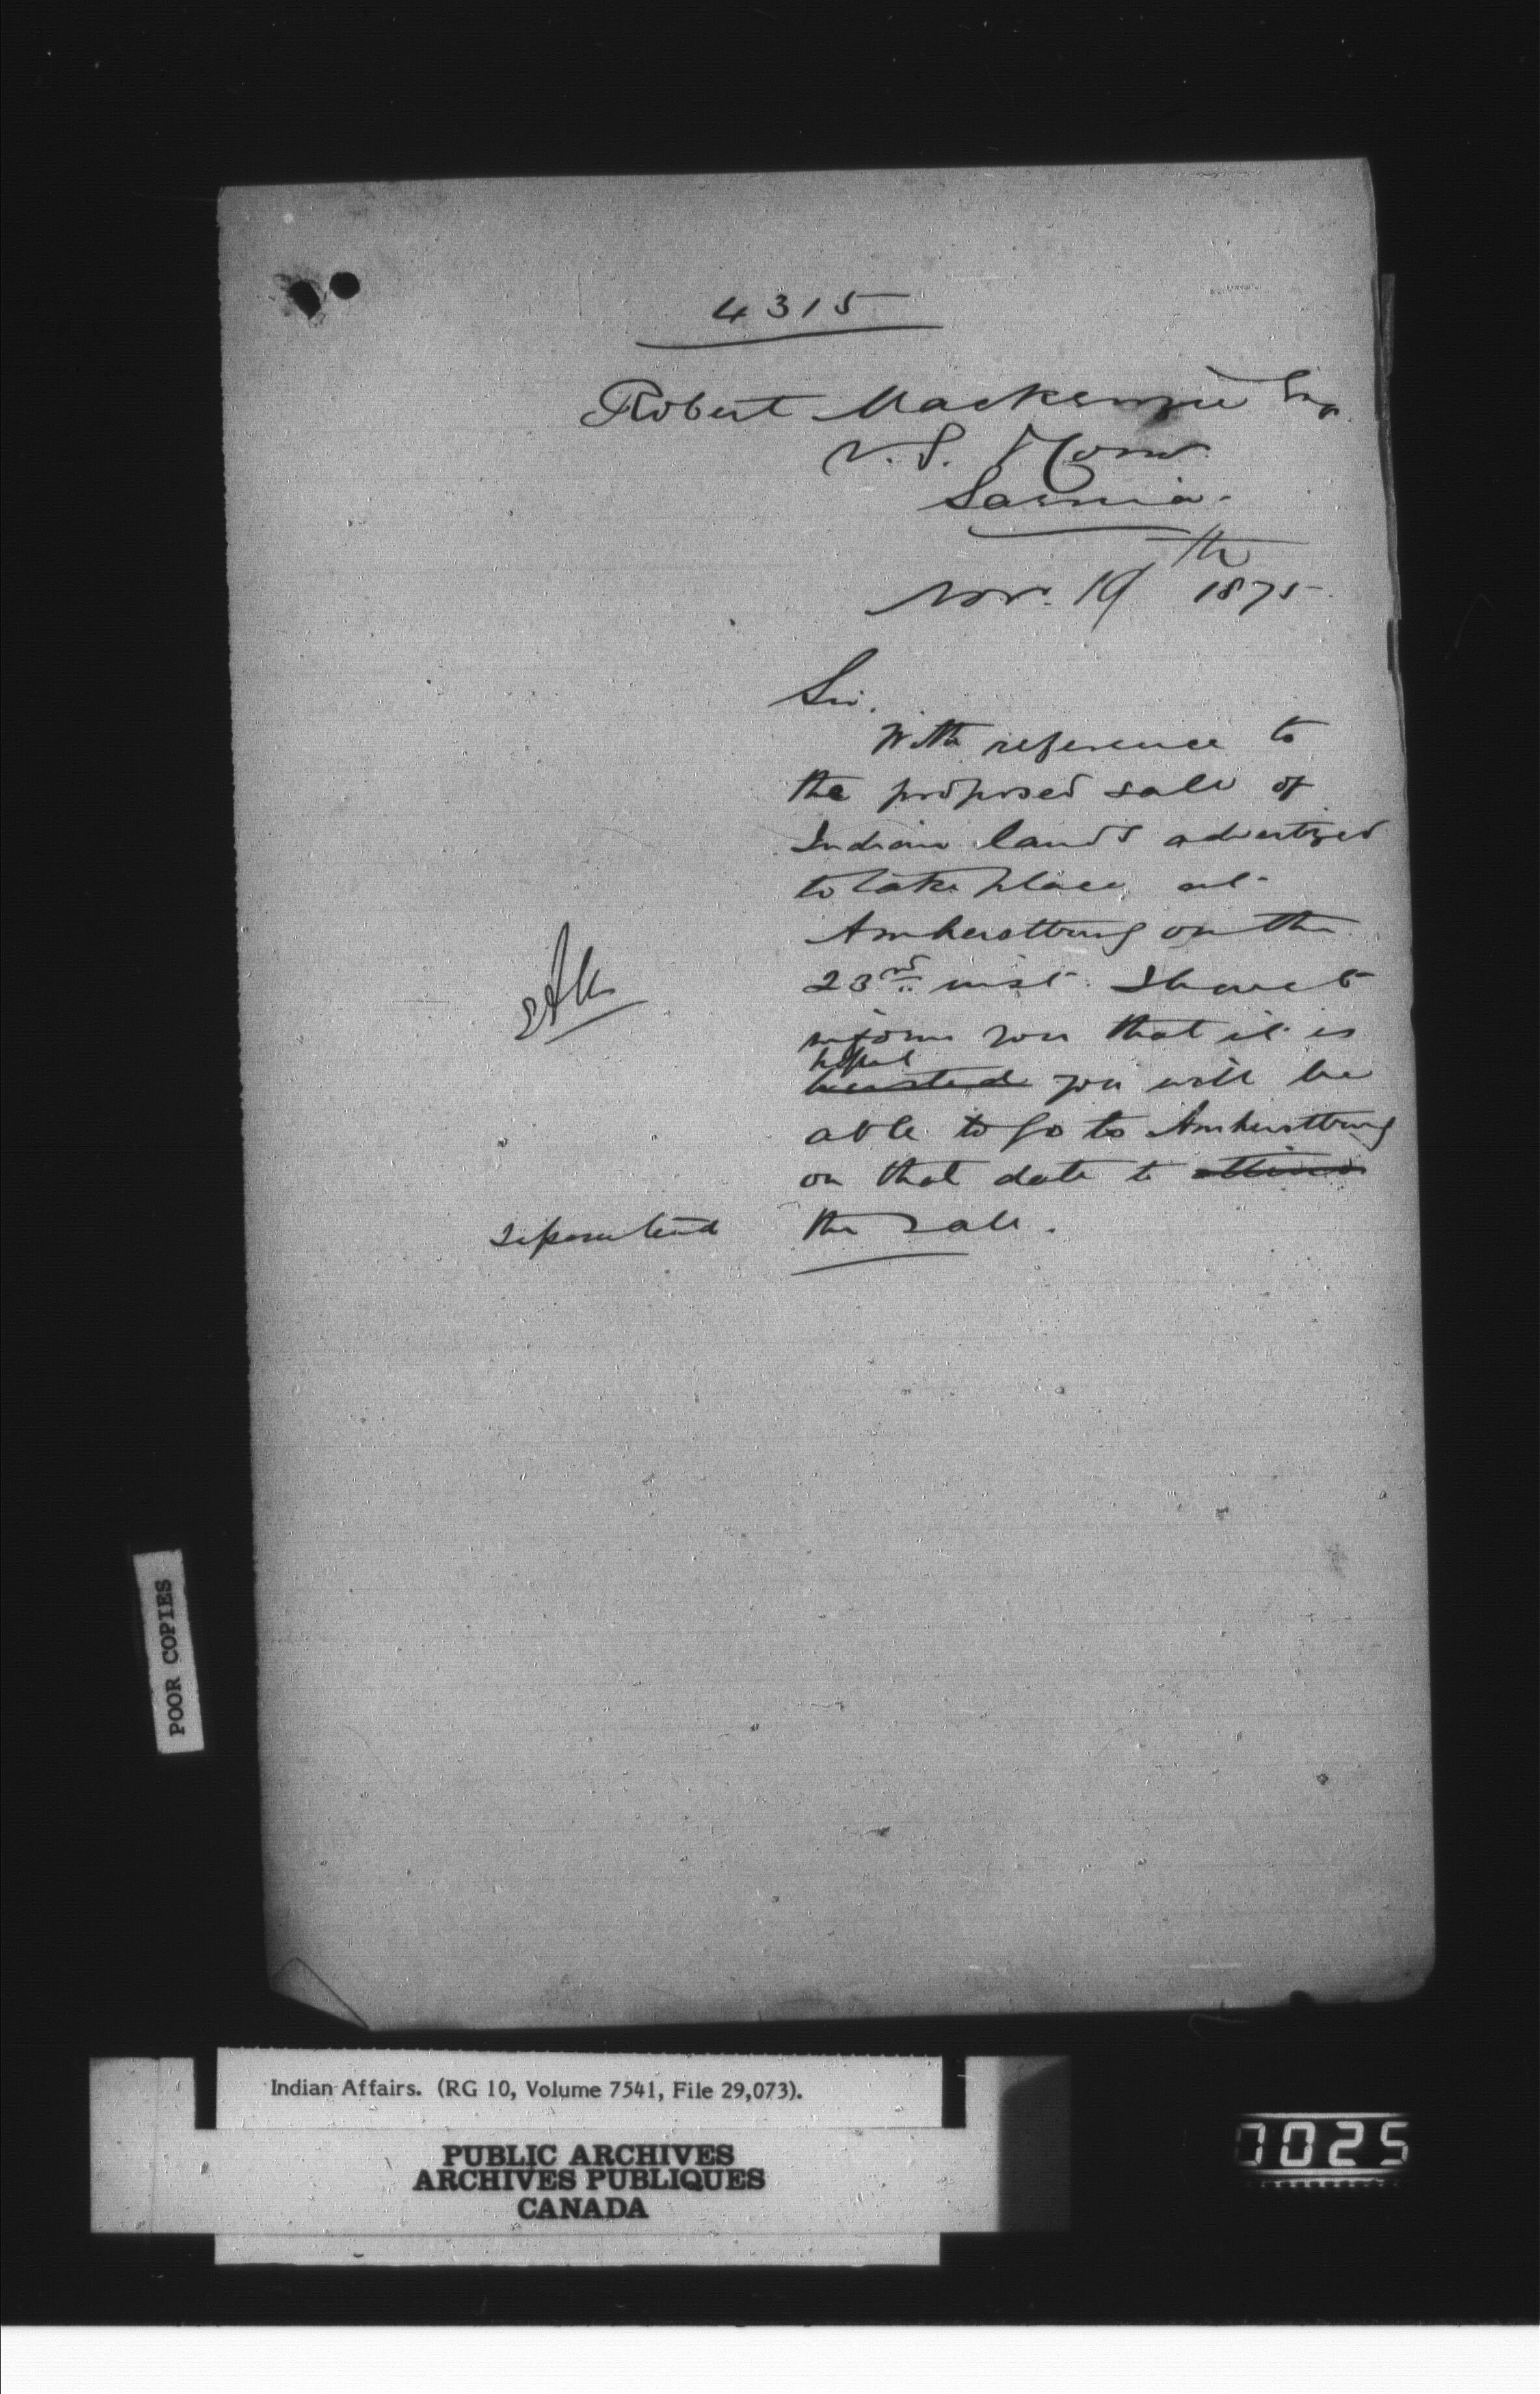 4315
Robert Mackenzie Esq.
V. S.
Sarnia.
Nov. 19th 1875.
Sir.
With reference to
the proposed sale of
Indian lands advertized
to take place at
Amherstburg on the
23rd inst. I have to
inform you that it is
hoped
trusted you will be
able to go to Amherstburg
on that date to attend
superintend the sale.
POOR COPIES
Indian Affairs. (RG 10, Volume 7541, File 29,073).
PUBLIC ARCHIVES
ARCHIVES PUBLIQUES
CANADA
0025